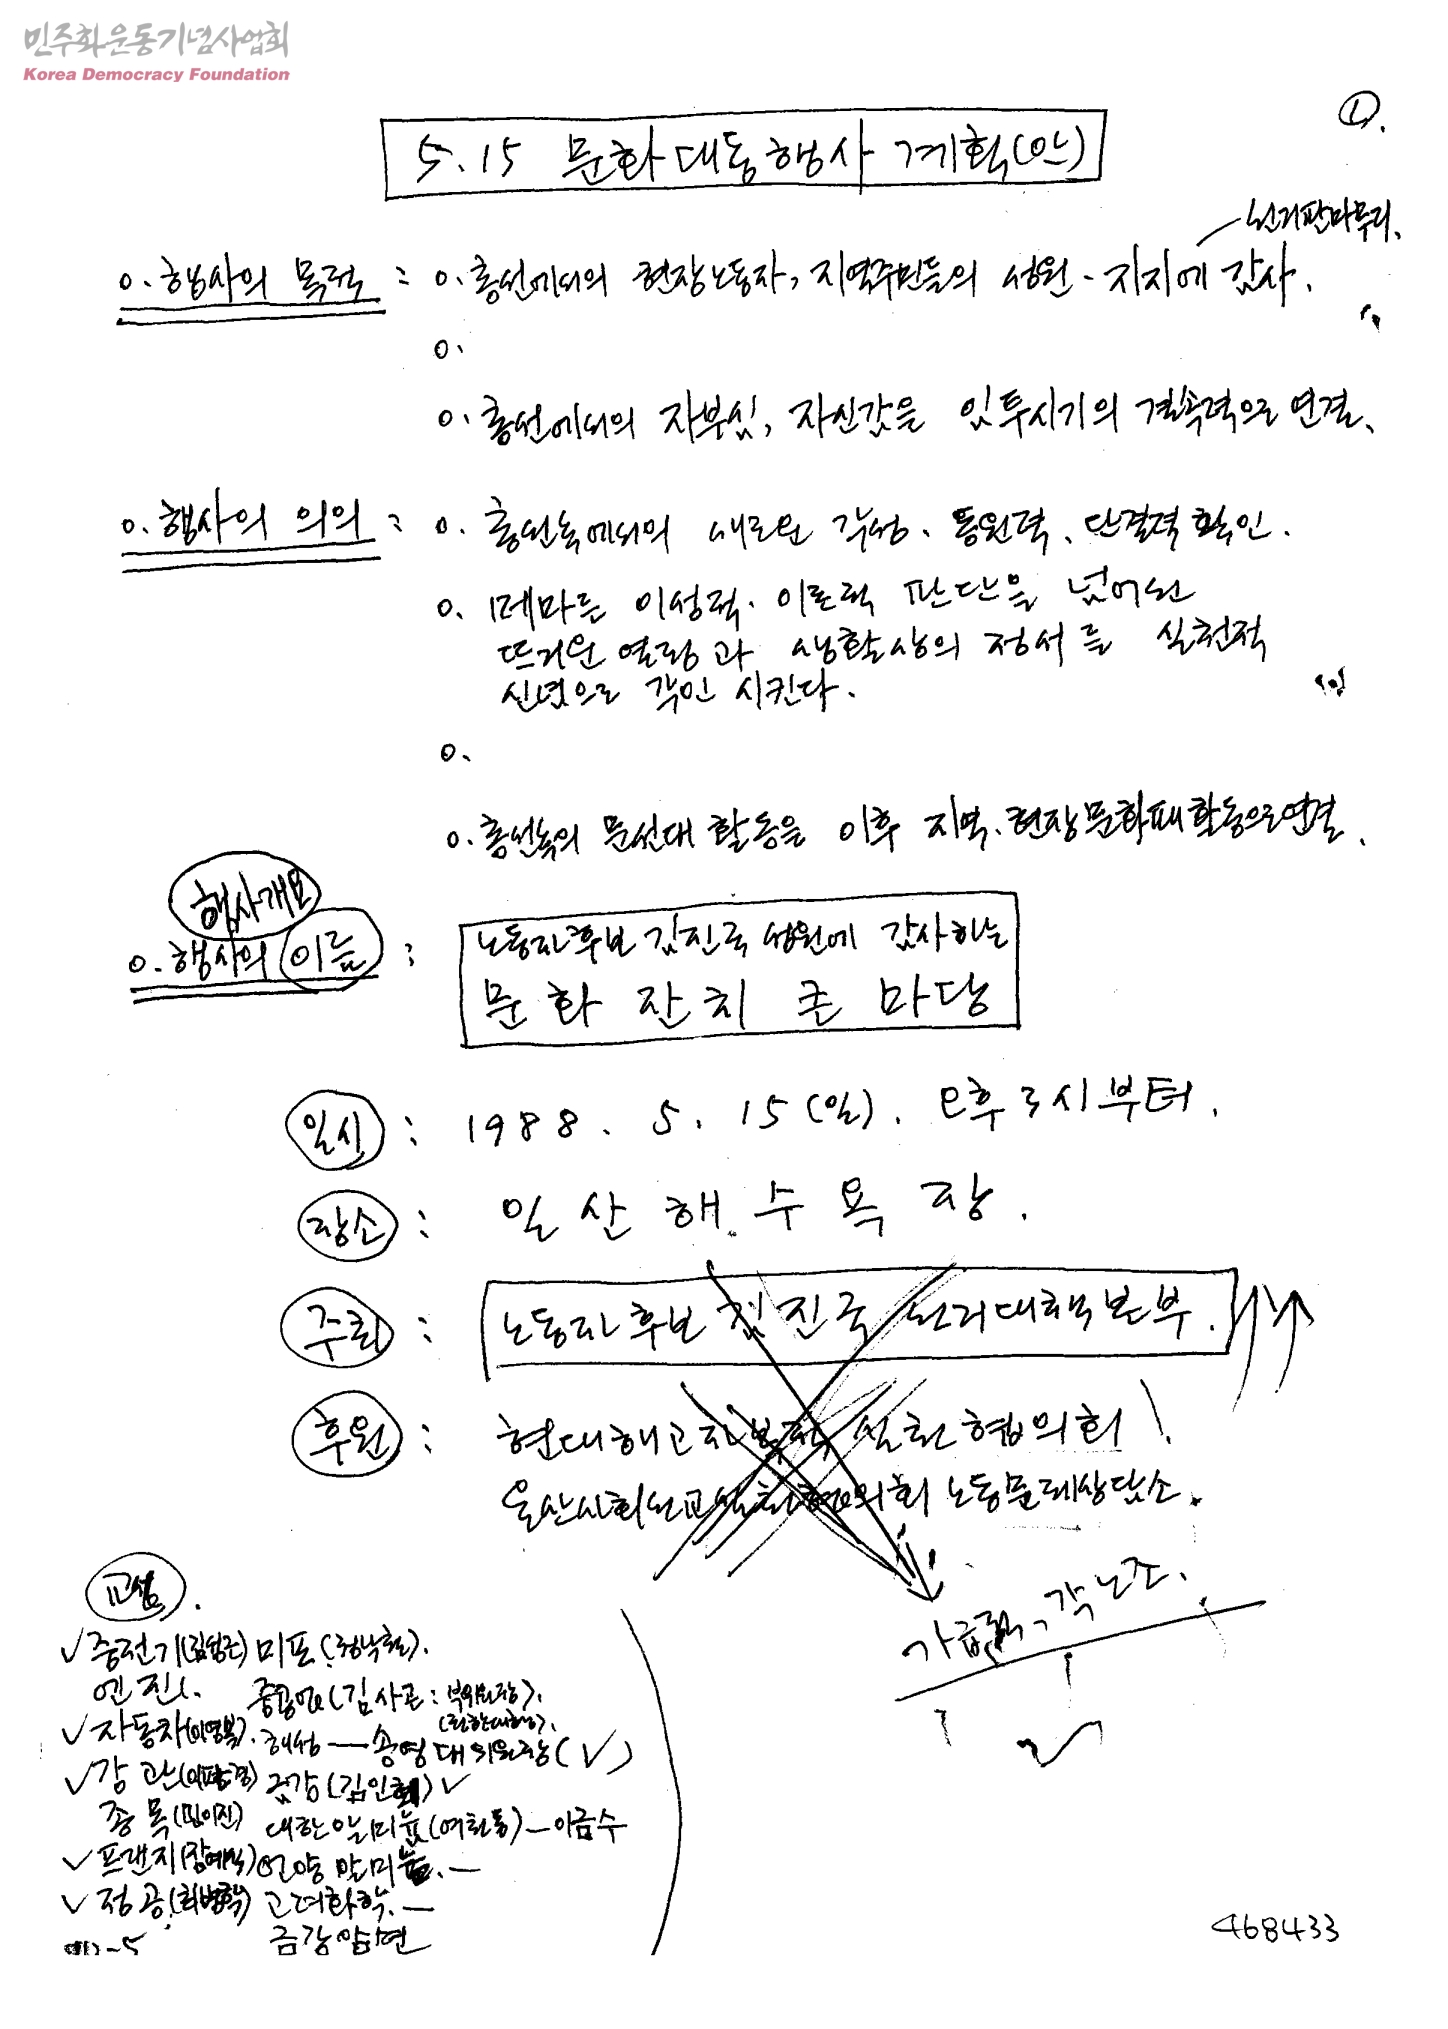 민주화운동기념사업회
Korea Democracy Foundation
①.
5.15 문화대동행사 계획(안)
선거판마무리.
o. 행사의 목적 : o. 총선에서의 현장노동자, 지역주민들의 성원·지지에 감사.
o.
o. 총선에서의 자부심, 자신감을 임투시기의 결속력으로 연결.
o. 행사의 의의 : o. 총선속에서의 새로운 각성, 동원력, 단결력 확인.
o. 메마른 이성적·이론적 판단을 넘어선
뜨거운 열정과 생활상의 정서를 실천적
신념으로 각인 시킨다.
o.
o. 총선속의 문선대 활동을 이후 지역·현장문화패활동으로연결.
행사개요
o. 행사의 이름 : 노동자후보 김진국 성원에 감사하는
문화 잔치 큰 마당
일시 : 1988. 5. 15(일). 오후 3시부터.
장소 : 일산해수욕장.
주최 : 노동자후보 김진국 선거대책본부.
후원 : 현대해고자복직 실천협의회
울산사회선교실천협의회 노동문제상담소.
가급적, 각 노조.
교섭.
✓ 중전기 미포
엔진
✓ 자동차(이영복). 해성 — 송영대 위원장(✓)
✓ 강관 금강 ✓
종목 대한알미늄(여천동) — 이금수
✓ 프랜지 언양알미늄. —
✓ 정공 고려화학. —
금강
468433